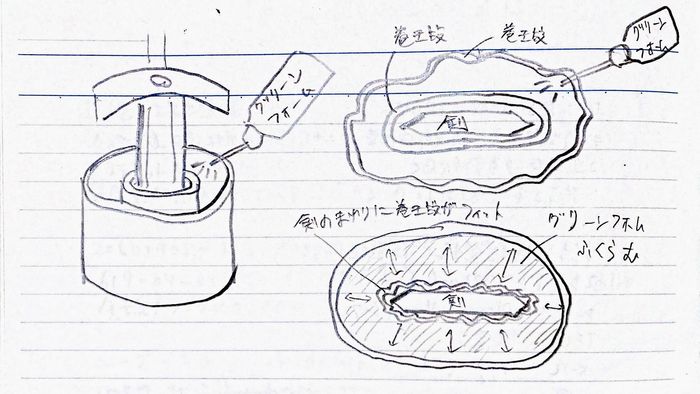 グリーン
フォーム
巻王紋
巻王紋
グリーン
フォーム
剣
剣のまわりに巻王紋がフィット
グリーンフホム
ふくらむ
剣